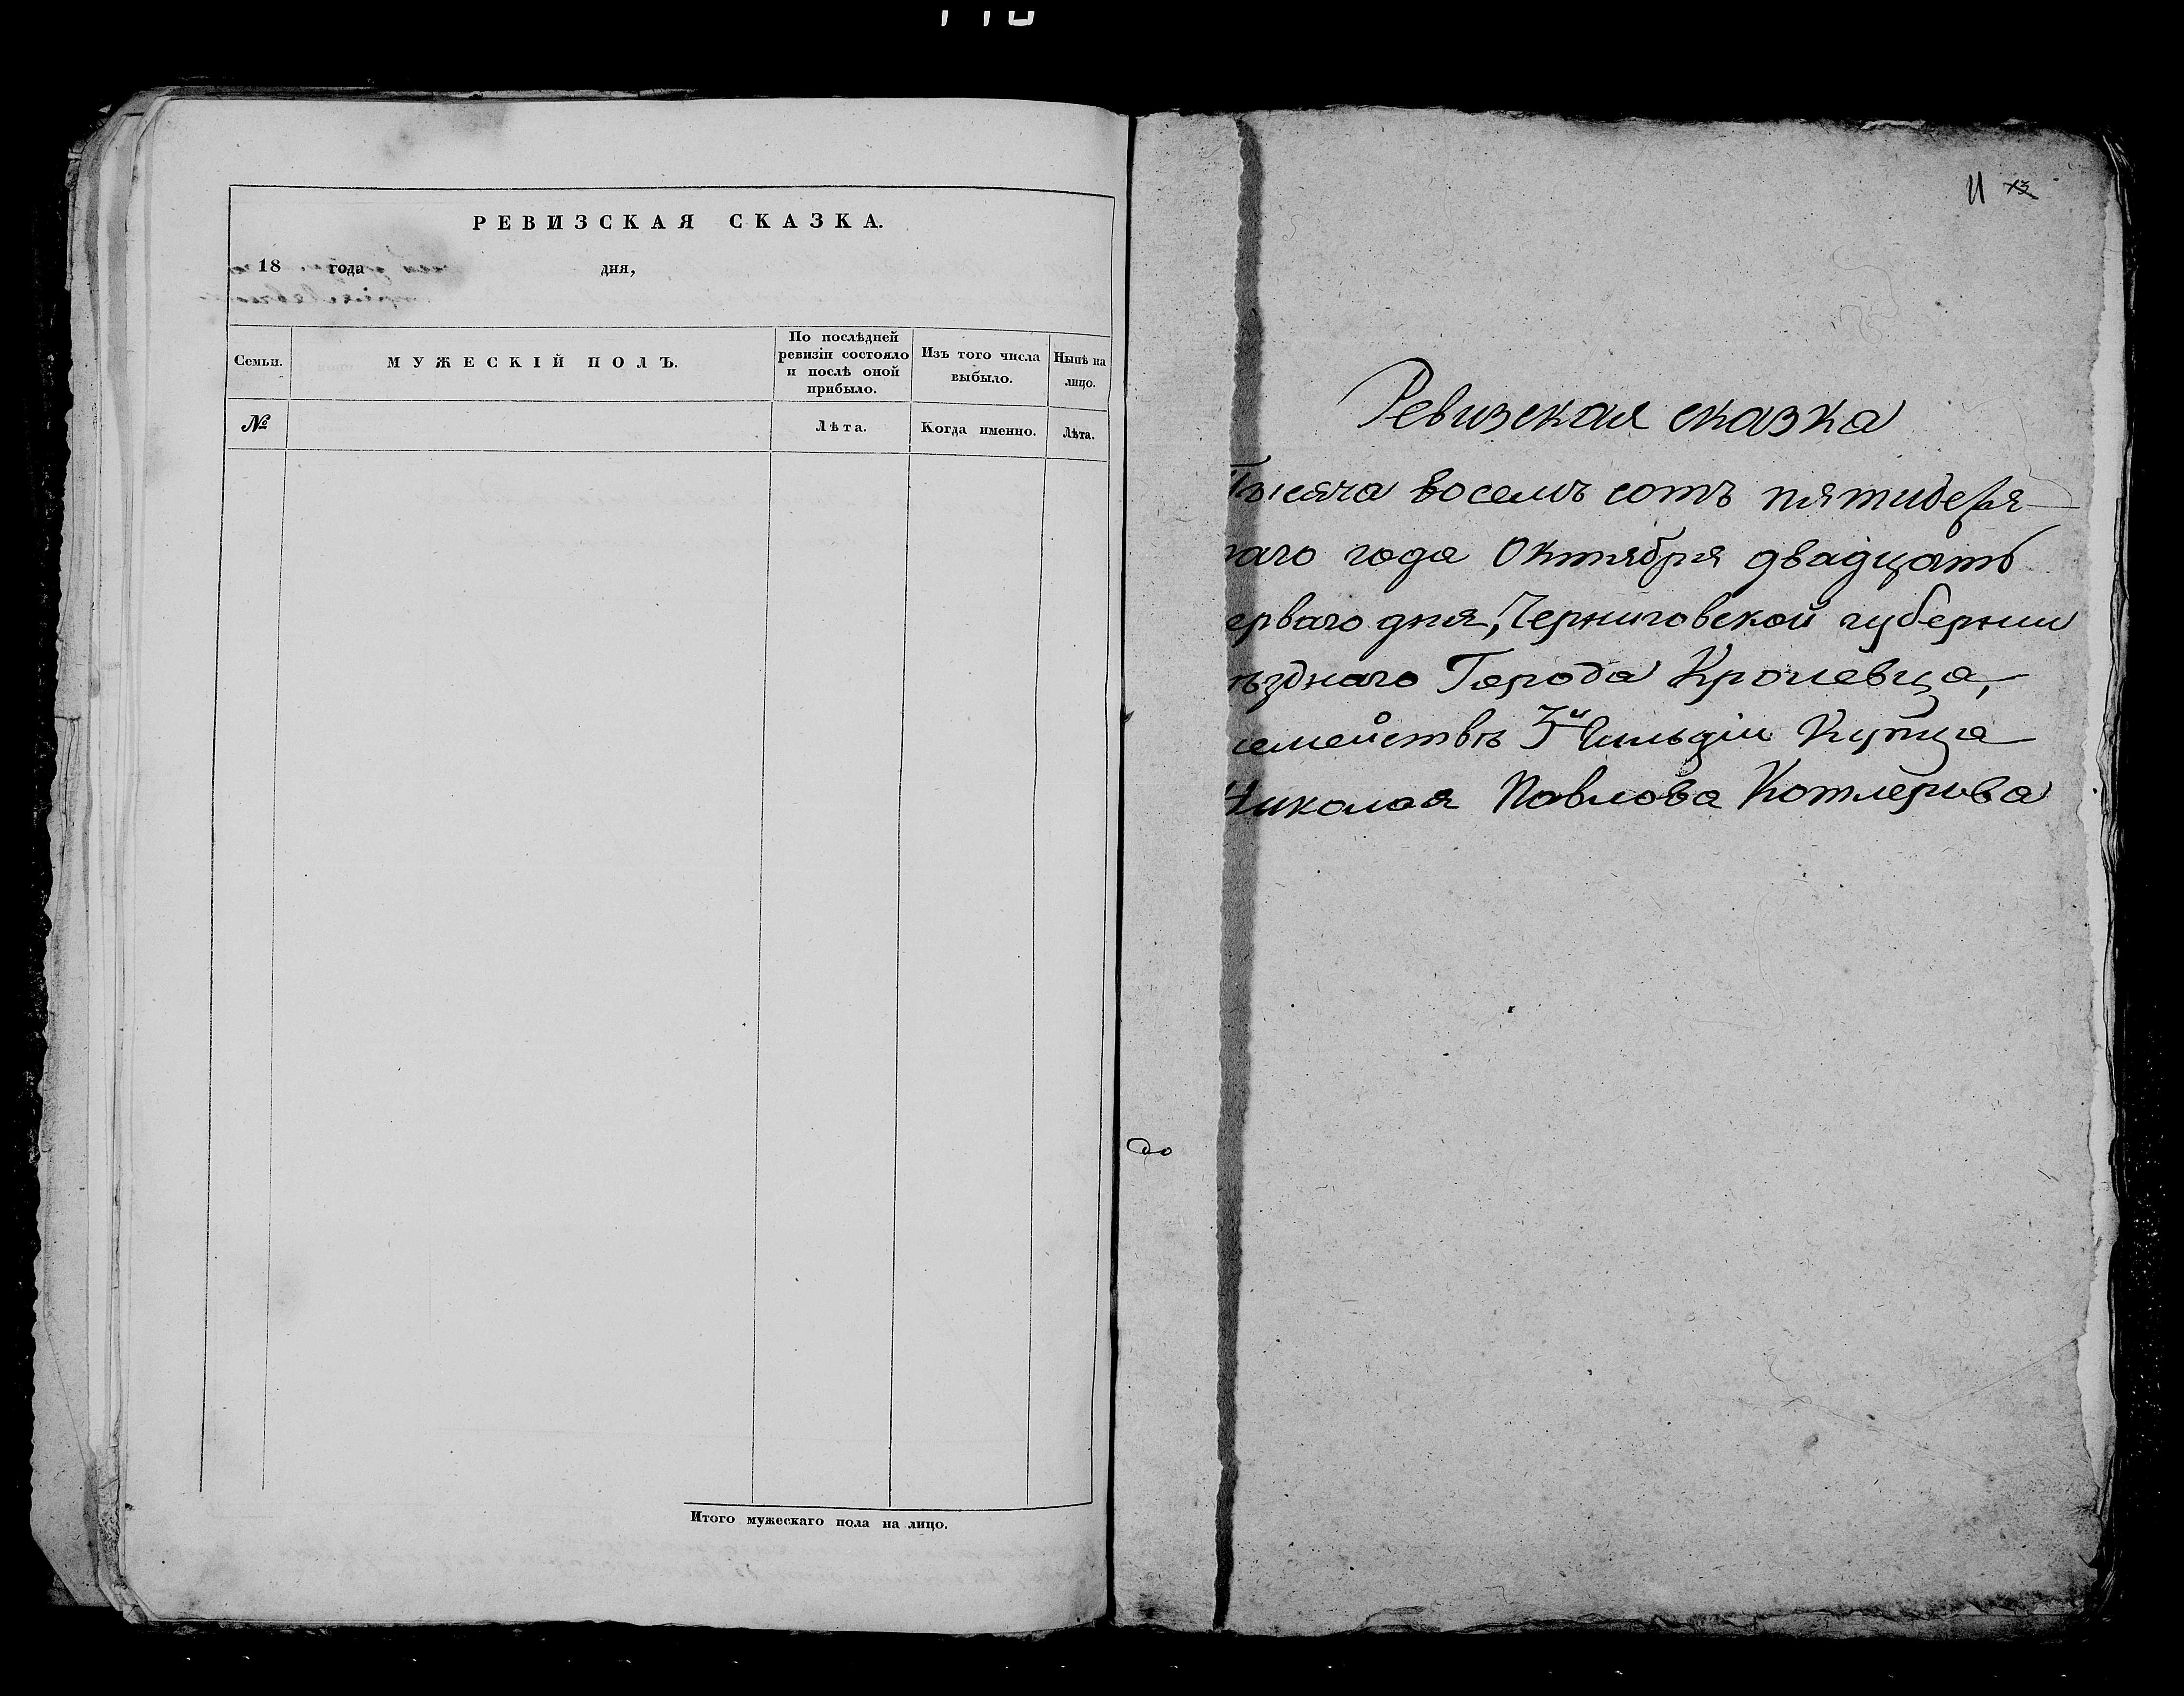 РЕВИЗСКАЯ СКАЗКА.
18 года дня,
Семьи.
МУЖЕСКІЙ ПОЛЪ.
По послѣдней ревизіи состояло и послѣ оной прибыло.
Изъ того числа выбыло.
Нынѣ на лицо.
№
Лѣта.
Когда именно.
Лѣта.
Итого мужескаго пола на лицо.
11 13
Ревизская сказка
Тысяча восемь сотъ пятидеся-
таго года Октября двадцать
ерваго дня, Черниговской губернии
ѣзднаго Города Кролевца,
семействѣ 3й Гильдіи Купца
Николая Павлова Котлерова
до